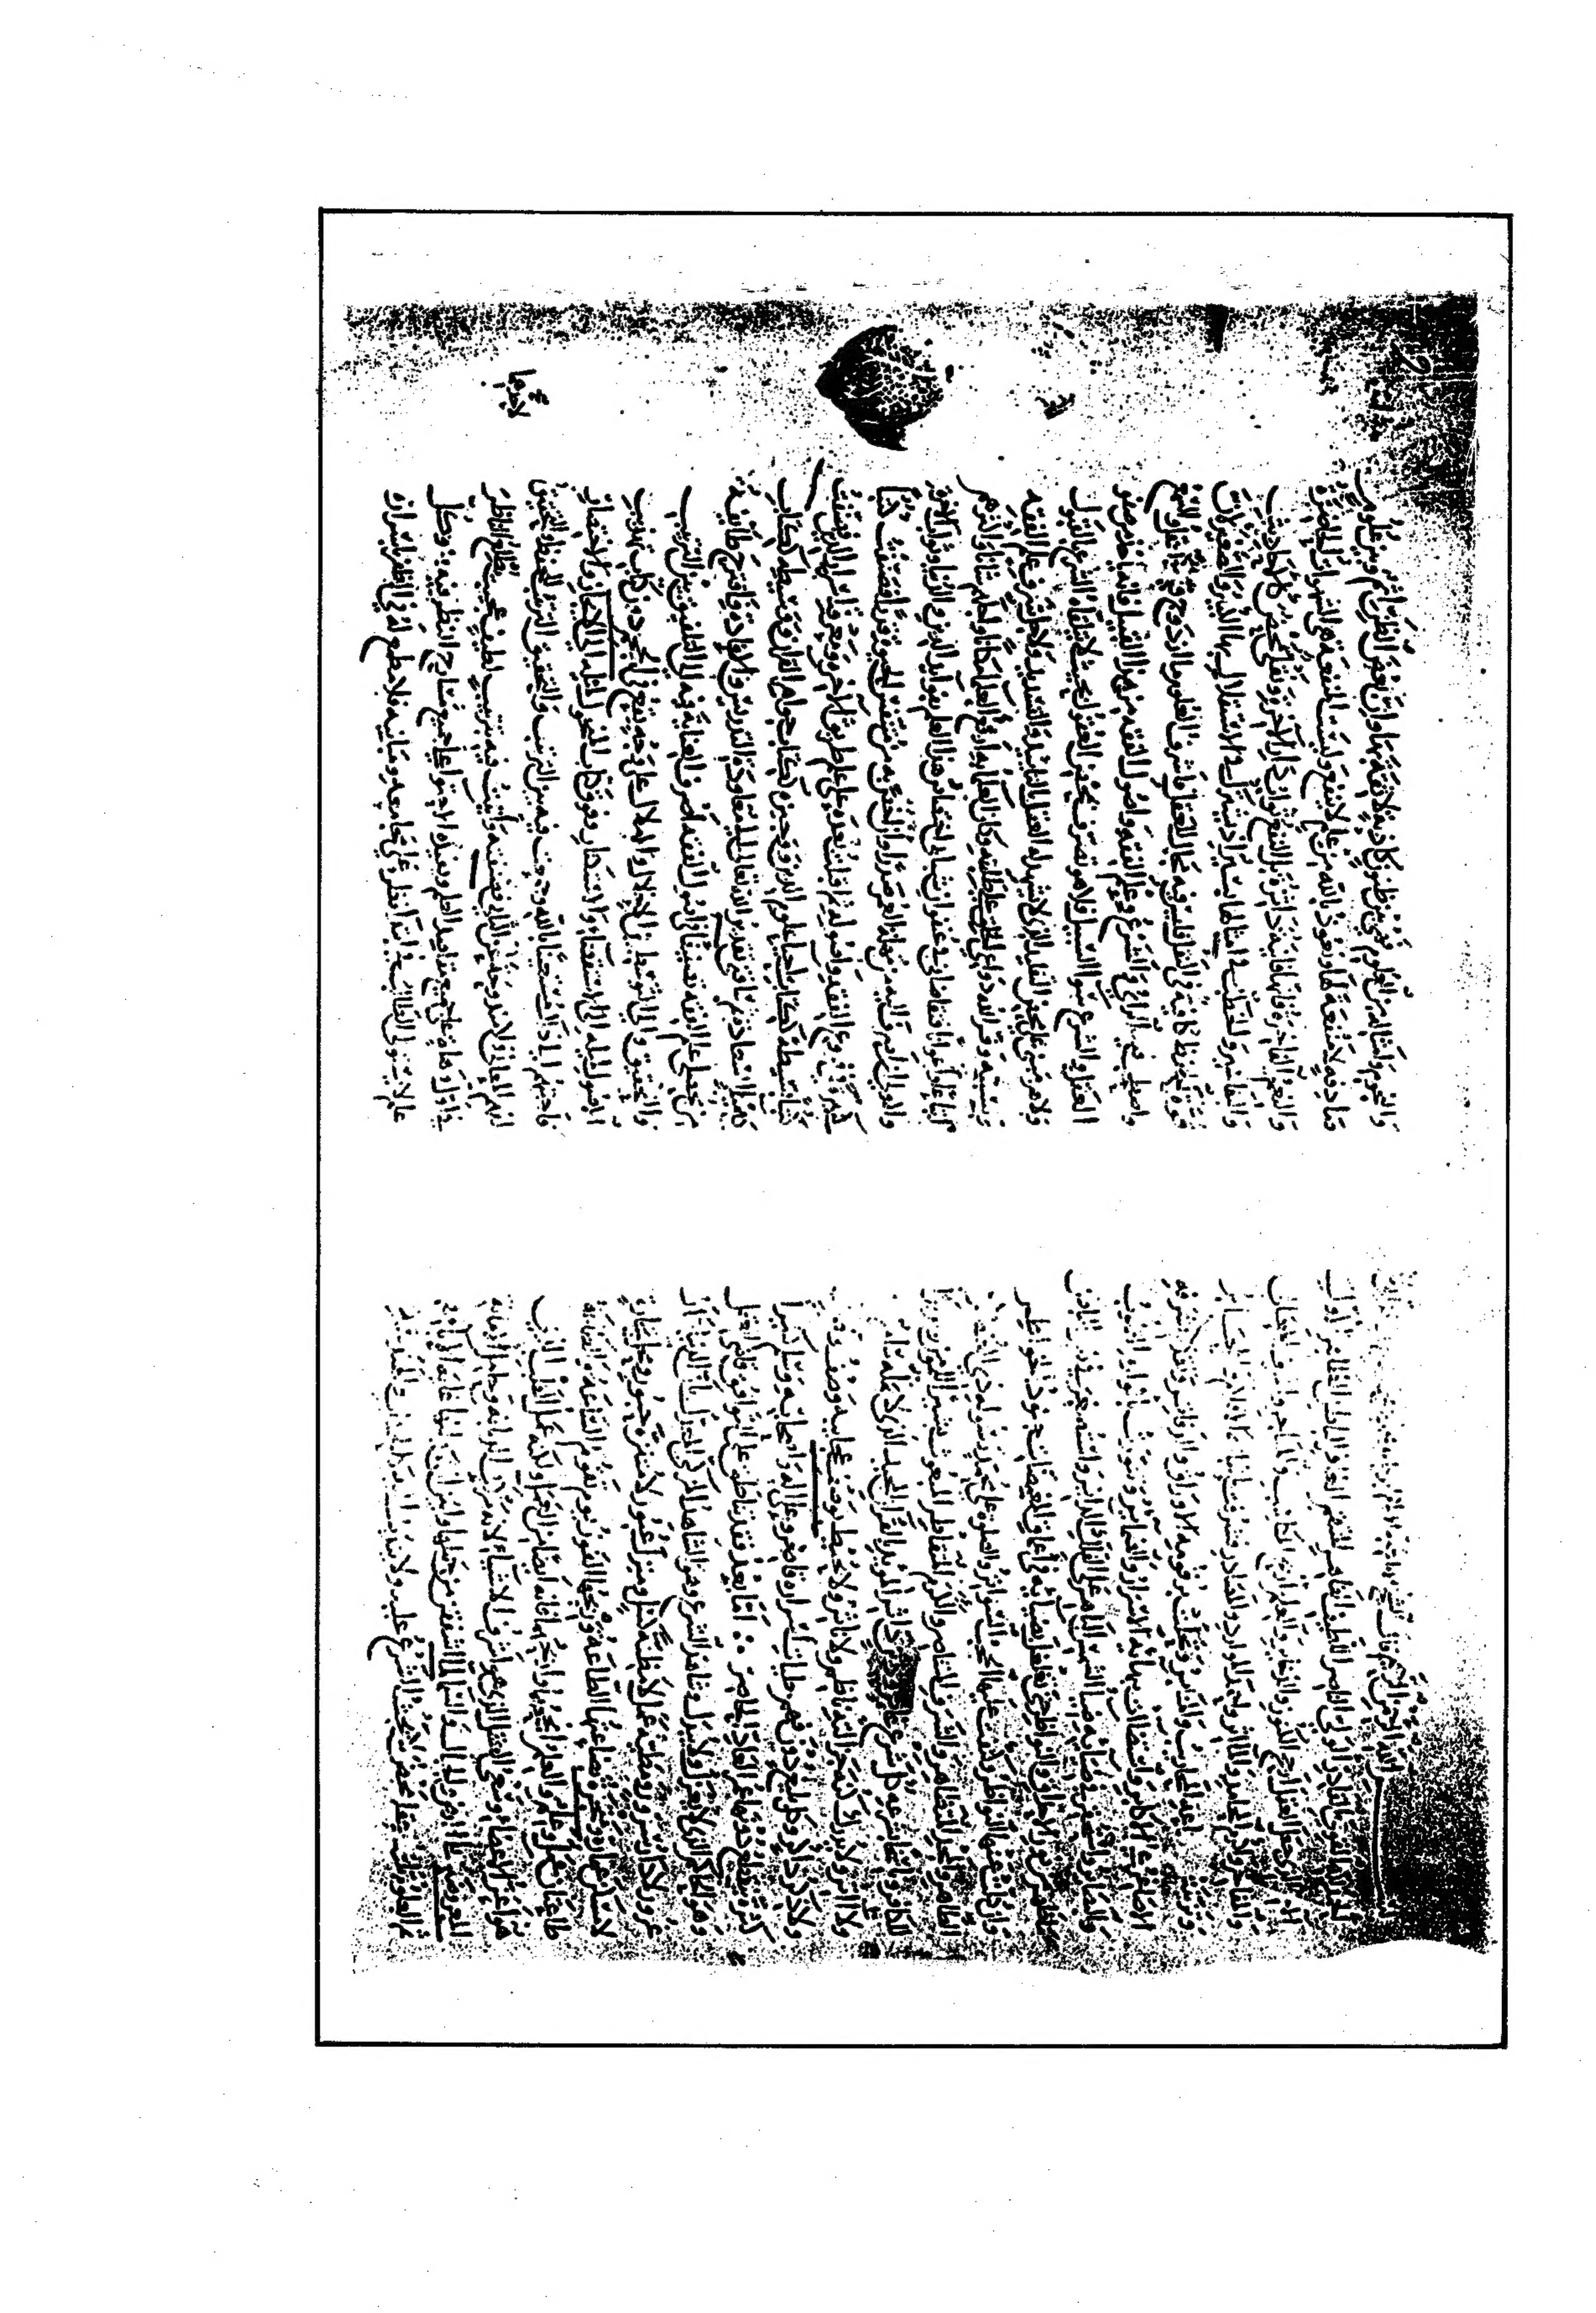 بسم الله الرحمن الرحيم قال الشيخ
الحمد لله القوي القادر الولي الناصر اللطيف القاهر المنتقم الغافر الباطن الظاهر الاول
الآخر الذي جعل العقل ارجح الكنوز والذخاير والعلم اربح المكاسب والمتاجر واشرف المعالي
والمفاخر واكرم المحامد والمآثر واحمد الموارد والمصادر فشرفت باثباته الاقلام والمحابر
وتزينت بسماعه المحاريب والمنابر وتحلت برقومه الاوراق والدفاتر وتقدم بشرفه
الاصاغر على الاكابر واستضات ببهائه الاسرار والضماير وتنورت بانواره القلوب
والبصاير واستحقر في ضيائه ضياء الشمس الباهر على الفلك الداير واستصغر في نوره الباطن
ما ظهر من نور الاحداق والنواظر حتى تغلغل بضيائه في اعماق المغمضات جنود الخواطر
وان كلت عنها النواظر وكثفت عليها الحجب والسواتر والصلوة على محمد رسوله ذي العنصر
الطاهر والمجد المتظاهر والشرف المتناصر والكرم المتقاطر المبعوث بشيرا للمؤمنين ونذيرا
للكافرين وناسخا بشرعه كل شرع غابر ودين داثر المؤيد بالقرآن المجيد الذي لا يمله سامع
ولا آثر ولا يدرك كنه جزالته ناظم ولا ناثر ولا يحيط بعجايبه وصف واصف
ولا ذكر ذاكر وكل بليغ دون فهم جليات اسراره قاصر وعلى اله واصحابه وسلم كثيرا
كثرة ينقطع دونها عمر العاد الحاصر اما بعد فقد تناطق على التوافق قاضي العقل
وهو الحاكم الذي لا يعزل ولا يبدل وشاهد الشرع وهو الشاهد المزكى المعدل بان الدنيا دار
غرور لا دار سرور ومطية عمل لا مطية كسل ومنزل عبور لا متنزه حبور ومحل تجارة
لا مسكن عمارة ومتجر بضاعتها الطاعة وربحها الفوز يوم تقوم الساعة والطاعة
طاعتان عمل وعلم والعلم انجحها واربحها فانه ايضا من العمل ولكنه عمل القلب الذي
هو اعز الاعضاء وسعي العقل الذي هو اشرف الاشياء لانه مركب الديانة وحامل الامانة
اذ عرضت على الارض والجبال والسماء فاشفقن من حملها وابين ان يحملنها غاية الاباء
ثم العلوم ثلثة عقلي محض لا يحث الشرع عليه ولا يندب اليه كالحساب والهندسة
والنجوم وامثاله من العلوم فهي بين ظنون كاذبة لا ثقة بها وان بعض الظن اثم وبين علوم
صادقة لا منفعة لها ونعوذ بالله من علم لا ينفع وليست المنفعة في الشهوات الحاضرة
والنعم الفاخرة فانها فانية داثرة بل النفع ثواب دار الآخرة ونقلي محض كالاحاديث
والتفاسير والخطب في امثالها يسير اذ يستوي في الاستقلال بها الصغير والكبير لان
قوة الحفظ كافية في النقل وليس فيها مجال للعقل واشرف العلوم ما ازدوج فيه العقل والسمع
واصطحب فيه الراي والشرع وعلم الفقه واصول الفقه من هذا القبيل فانه ياخذ من صفو
العقل والشرع سواء السبيل فلا هو تصرف بمحض العقول بحيث لا يتلقاه الشرع بالقبول
ولا هو مبني على محض التقليد الذي لا يشهد له العقل بالتاييد والتسديد ولاجل شرف علم الفقه
وسببه وفر الله دواعي الخلق على طلبه وكان العلماء به ارفع العلماء مكانا واجلهم شانا واكثرهم
اتباعا واعوانا فتقاضاني في عنفوان شبابي اختصاص هذا العلم بفوايد الدين والدنيا وثواب الآخرة
والاولى
كثيرة في فروع الفقه واصوله ثم اقبلت بعده على علم طريق الآخرة ومعرفة اسرار الدين الباطنة فصنفت
كتبا بسيطة ككتاب احيا علوم الدين ووجيزة ككتاب جواهر القران ووسيطة ككتاب
كيميا السعادة ثم ساقني تقدير الله تعالى الى معاودة التدريس والافادة فاقترح علي طايفة
من محصلي علم الفقه تصنيفا في اصول الفقه اصرف العناية فيه الى التلفيق بين الترتيب
والتحقيق والى التوسط بين الاخلال والاملال على وجه يقع في الحجم دون كتاب تهذيب
الاصول لميله الى الاستقصاء والاستكثار وفوق كتاب المنخول لميله الى الايجاز والاختصار
فاجبتهم الى ذلك مستعينا بالله وجمعت فيه بين الترتيب والتحقيق
لفهم المعاني فلا مندوحة لاحدهما عن الثاني فصنفته واتيت فيه بترتيب لطيف عجيب يطلع الناظر
في اول وهلة على جميع مقاصد العلم ويفيده الاحتواء على جميع مسارح النظر فيه فكل
علم لا يستولي الطالب في ابتداء نظره على مجامعه ومبانيه فلا مطمع له في الظفر باسراره